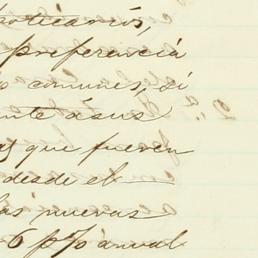 poticarios,
preferencia
comunes, si
ante á sus
que fueren
desde el
las nuevas
6 p% anual